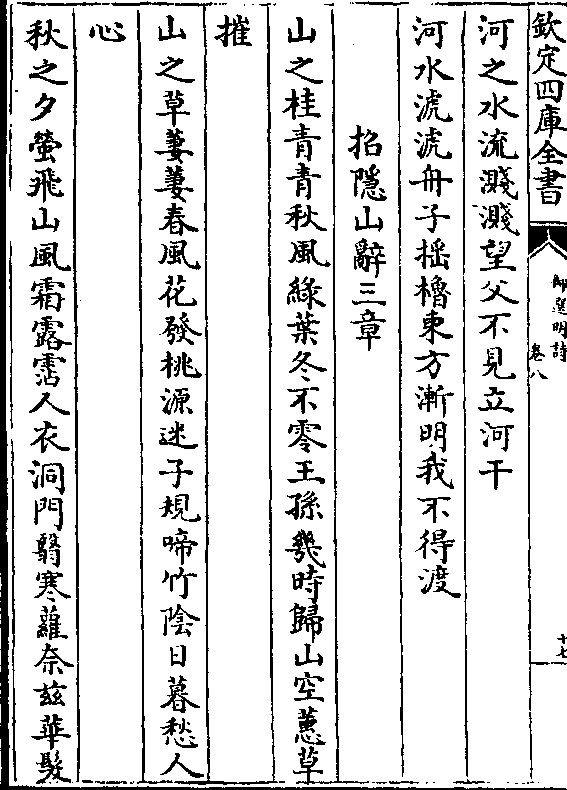 欽定四庫全書
御選明詩
卷八
十七
河之水流濺濺望父不見立河干
河水滮滮舟子揺櫓東方漸明我不得渡
招隱山辭三章
山之桂青青秋風綠葉冬不零王孫幾時歸山空蕙草
摧
山之草萋萋春風花發桃源迷子規啼竹陰日暮愁人
心
秋之夕螢飛山風霜露霑人衣洞門翳寒蘿奈兹華髮